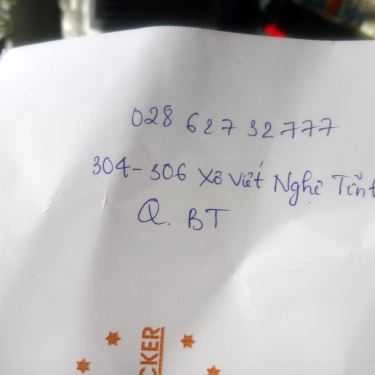 028 62732777
304-306 Xô Viết Nghệ Tĩnh
Q. BT
CKER